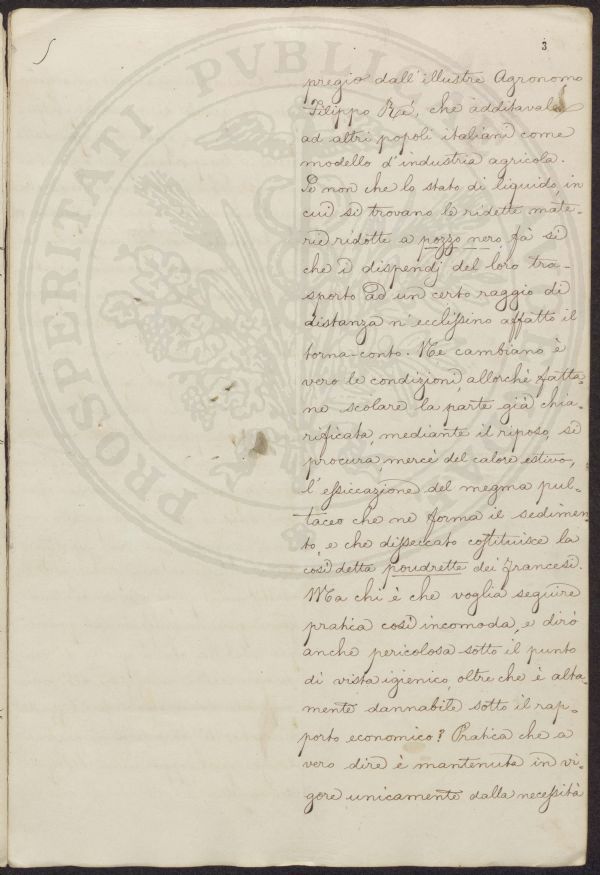 3
pregio dall'illustre Agronomo
Filippo Rè, che additavale
ad altri popoli italiani come
modello d'industria agricola.
Se non che lo stato di liquido, in
cui si trovano le ridette mate-
rie ridotte a pozzo nero, fà sì
che i dispendj del loro tra-
sporto ad un certo raggio di
distanza n'ecclissino affatto il
torna-conto. Ne cambiano è
vero le condizioni, allorchè fatta-
ne scolare la parte già chia-
rificata, mediante il riposo, si
procura, mercè del calore estivo,
l'essiccazione del megma pul-
taceo che ne forma il sedimen-
to, e che disseccato costituisce la
così detta poudrette dei francesi.
Ma chi è che voglia seguire
pratica così incomoda, e dirò
anche pericolosa sotto il punto
di vista igienico, oltre che è alta-
mente dannabile sotto il rap-
porto economico? Pratica che a
vero dire è mantenuta in vi-
gore unicamente dalla necessità
PROSPERITATI PUBLICAE